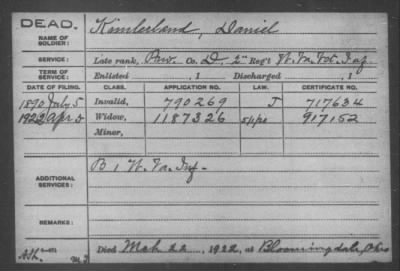 DEAD.
NAME OF SOLDIER:
Kimberland, Daniel
SERVICE:
Late rank, Priv. Co. D, 2" Reg't W. Va. Vet. Inf.
TERM OF SERVICE:
Enlisted , 1 Discharged , 1
DATE OF FILING. CLASS. APPLICATION NO. LAW. CERTIFICATE NO.
1890 July 5 Invalid, 790269 J 717634
1922 Apr 5 Widow, 1187326 917152
Minor,
ADDITIONAL SERVICES:
B 1 W. Va. Inf.
REMARKS:
Died Mch 22, 1922, at Bloomingdale, Ohio